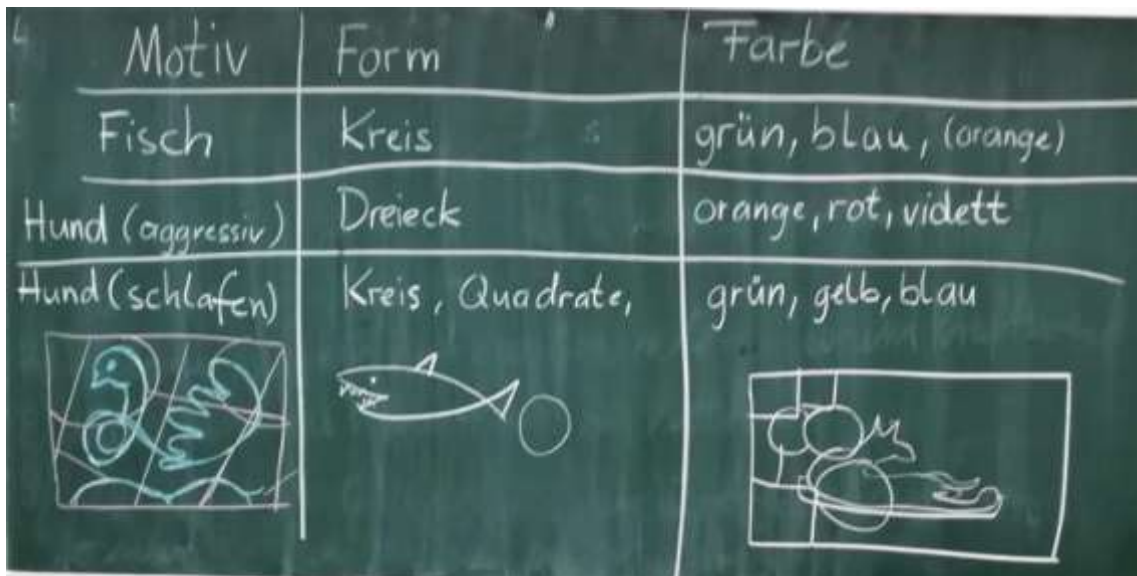 Motiv Form Farbe
Fisch Kreis grün, blau, (orange)
Hund (aggressiv) Dreieck orange, rot, vidett
Hund (schlafen) Kreis, Quadrate, grün, gelb, blau